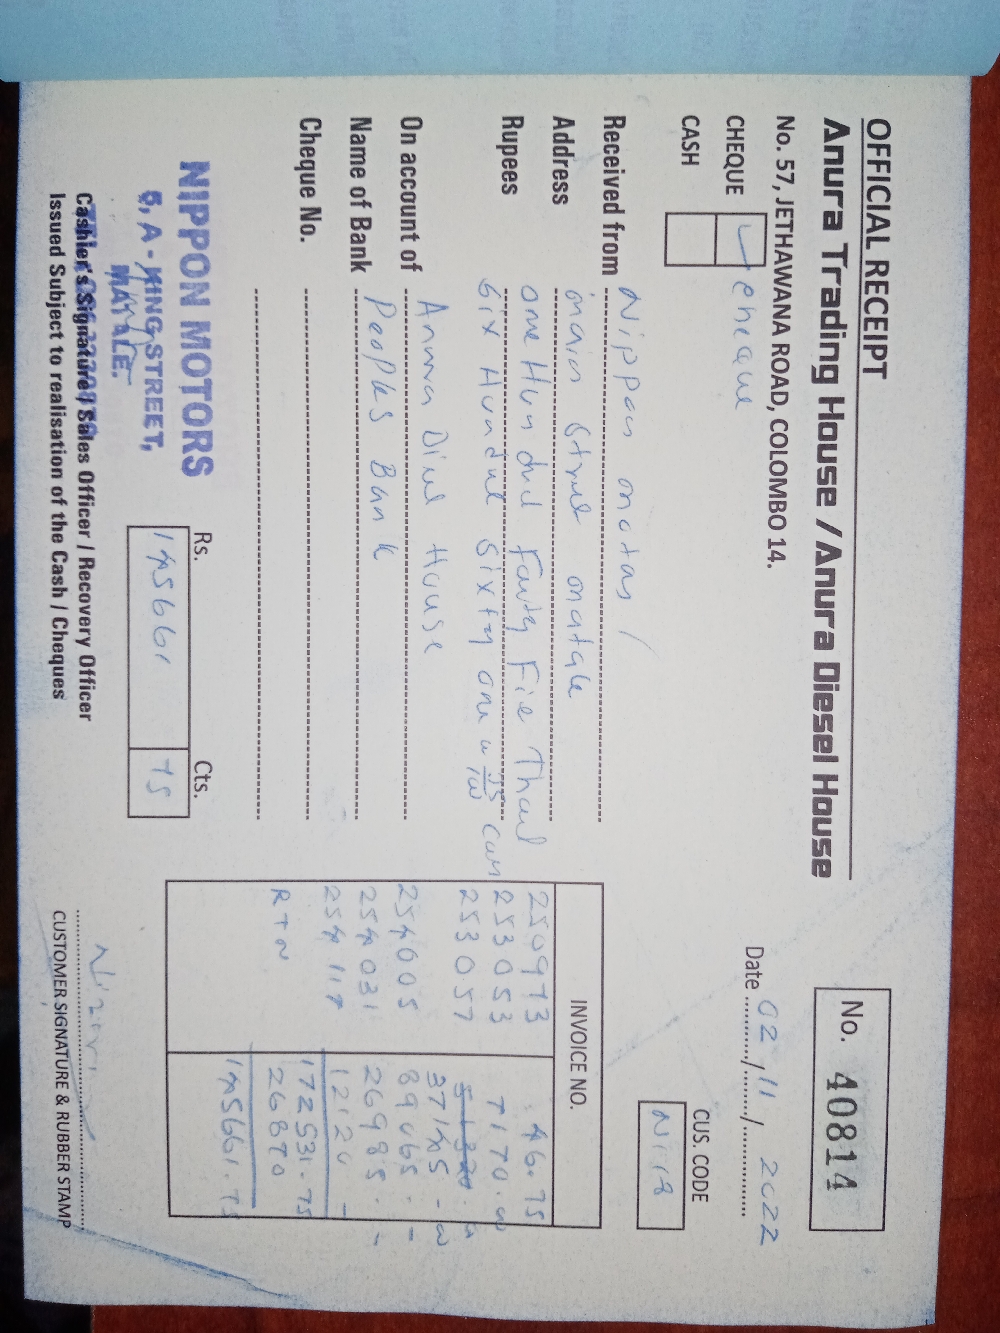 OFFICIAL RECEIPT
Anura Trading House / Anura Diesel House
No. 57, JETHAWANA ROAD, COLOMBO 14.
No. 40814
CHEQUE cheque
CASH
Date 02/11/2022
CUS. CODE
Received from Nippon motors
Address street matale
Rupees one Hundred Fourty Five
Six Hundred sixty one
On account of Anura House
Name of Bank Peoples Bank
Cheque No.
INVOICE NO.
253053 7170.00
253057
37145-00
254005 89065-
254031 26985.-
254117 12120-
172531.75
RTN 26870
145661.75
Rs. Cts.
145661 75
NIPPON MOTORS
6, A - KING STREET,
MATALE.
Cashier's Signature / Sales Officer / Recovery Officer
Issued Subject to realisation of the Cash / Cheques
CUSTOMER SIGNATURE & RUBBER STAMP